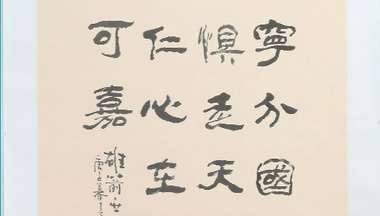 寧分國
惧走天
仁心在
可嘉